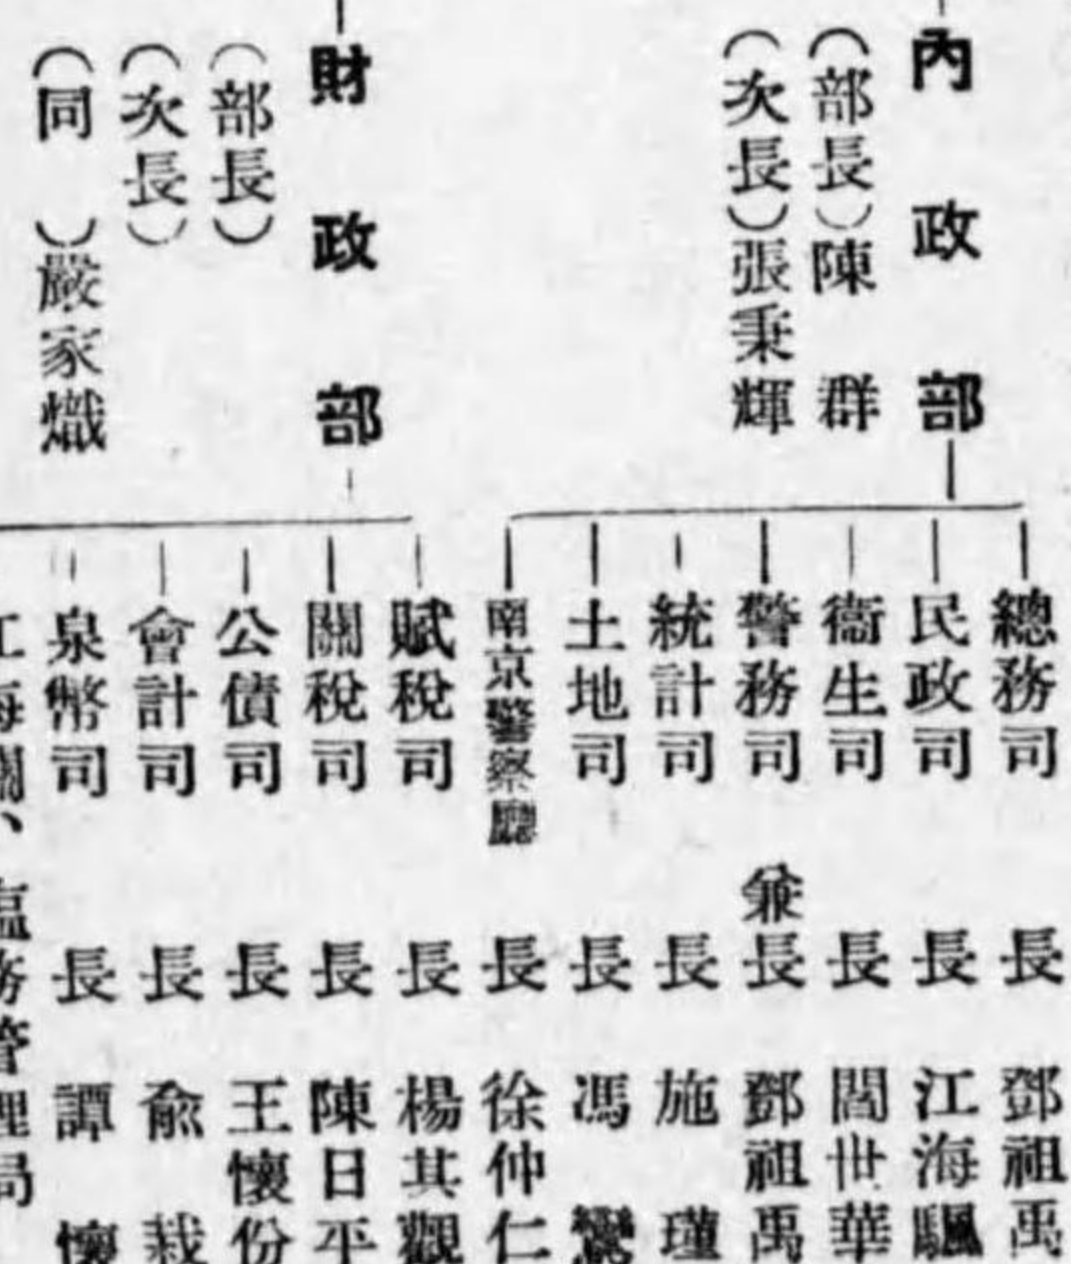 內政部
(部長)陳群
(次長)張秉輝
總務司 長 鄧祖禹
民政司 長 江海颿
衞生司 長 閻世華
警務司 兼長 鄧祖禹
統計司 長 施瑾
土地司 長 馮
南京警察廳 長 徐仲仁
財政部
(部長)
(次長)
(同)嚴家熾
賦稅司 長 楊其觀
關稅司 長 陳日平
公債司 長 王懷份
會計司 長 俞栽
泉幣司 長 譚懷
江海關、塩務管理局